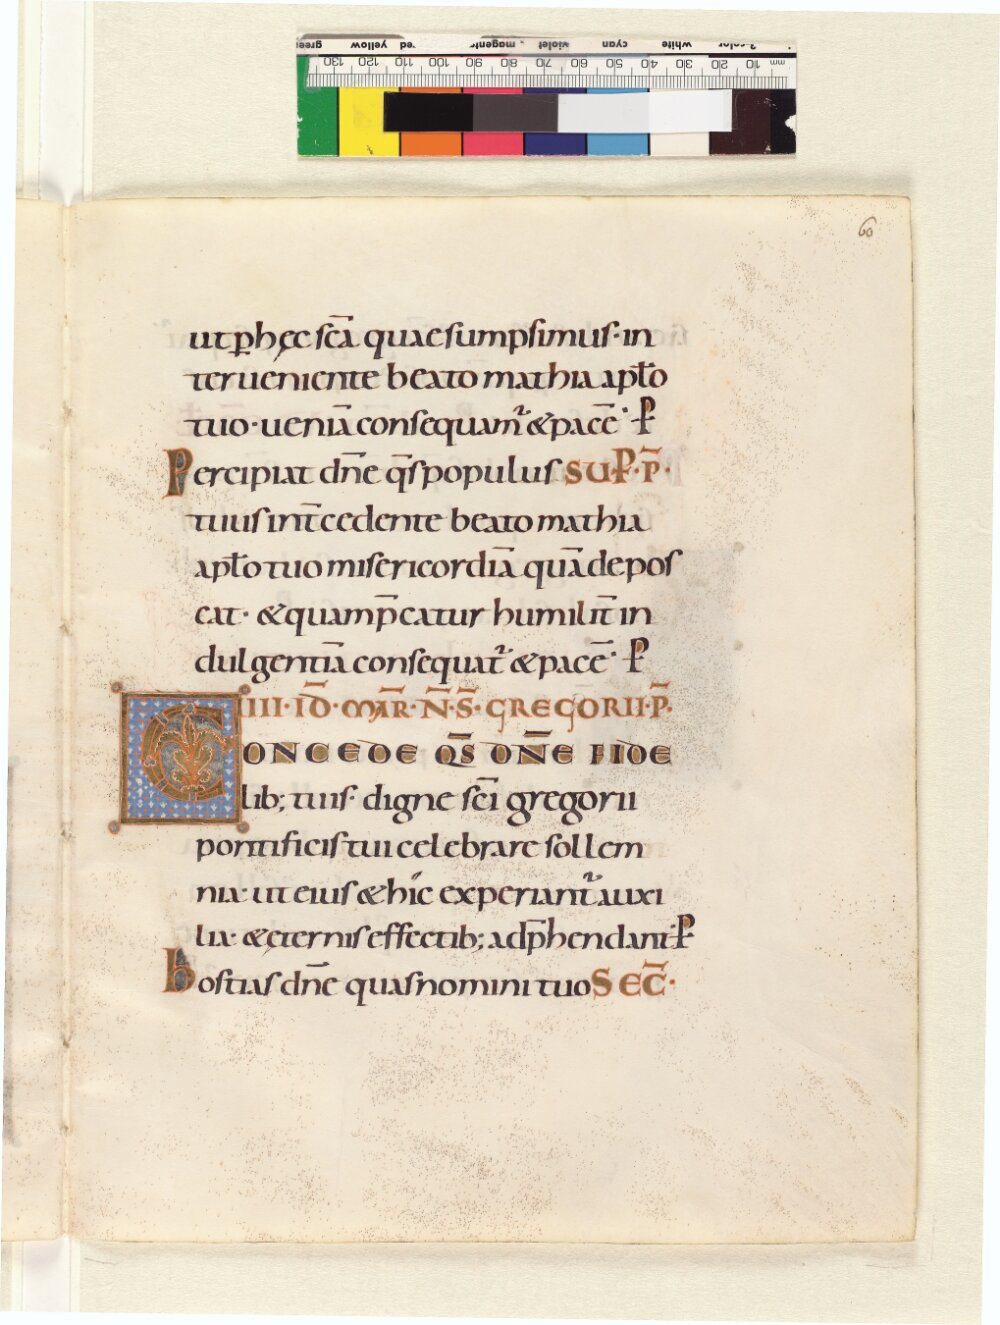 60
ut p̲ hęc sc̄a quae sumpsimus· in
terueniente beato mathia apl̄o
tuo· ueniā consequamr̄ & pacē· P̲
Percipiat dn̄e q̄s populus SUP̲· P̄·
tuus int̄cedente beato mathia
apl̄o tuo misericordiā quā depos
cat· & quam p̄catur humilit̄ in
dulgentiā consequat̄ & pacē· P̲
IIII· ID̄· MAR̄· N̄· S̄· GREGORII· P̄·
CONCEDE Q̄S DN̄E FIDE
lib; tuis· digne sc̄i gregorii
pontificis tui celebrare sollem
nia· ut eius & hic experiant̄ auxi
lia· & ęternis effectib; adp̄hendant P̲
hostias dn̄e quas nomini tuo SEC̄·